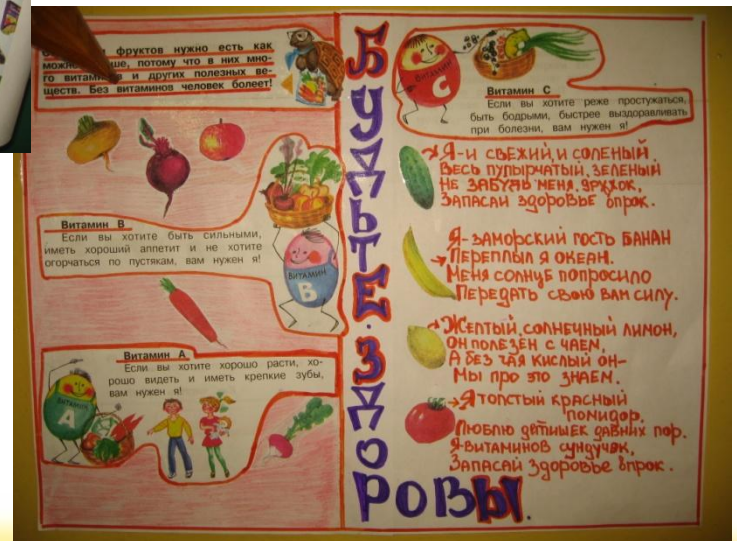 фруктов нужно есть как
потому что в них мно-
го витаминов и других полезных ве-
ществ. Без витаминов человек болеет!
Витамин В
Если вы хотите быть сильными,
иметь хороший аппетит и не хотите
огорчаться по пустякам, вам нужен я!
ВИТАМИН
В
Витамин А
Если вы хотите хорошо расти, хо-
рошо видеть и иметь крепкие зубы,
вам нужен я!
ВИТАМИН
А
БУДЬТЕ ЗДОРОВЫ.
ВИТАМИН
С
Витамин С
Если вы хотите реже простужаться,
быть бодрыми, быстрее выздоравливать
при болезни, вам нужен я!
Я-И СВЕЖИЙ, И СОЛЕНЫЙ,
ВЕСЬ ПУПЫРЧАТЫЙ, ЗЕЛЕНЫЙ
НЕ ЗАБУДЬ МЕНЯ, ДРУЖОК,
ЗАПАСАЙ ЗДОРОВЬЕ ВПРОК.
Я-ЗАМОРСКИЙ ГОСТЬ БАНАН
ПЕРЕПЛЫЛ Я ОКЕАН.
МЕНЯ СОЛНЦЕ ПОПРОСИЛО
ПЕРЕДАТЬ СВОЮ ВАМ СИЛУ.
ЖЕЛТЫЙ, СОЛНЕЧНЫЙ ЛИМОН,
ОН ПОЛЕЗЕН С ЧАЕМ,
А БЕЗ ЧАЯ КИСЛЫЙ ОН-
МЫ ПРО ЭТО ЗНАЕМ.
Я ТОЛСТЫЙ КРАСНЫЙ
ПОМИДОР.
ЛЮБЛЮ ДЕТИШЕК ДАВНИХ ПОР.
Я-ВИТАМИНОВ СУНДУЧОК,
ЗАПАСАЙ ЗДОРОВЬЕ ВПРОК.